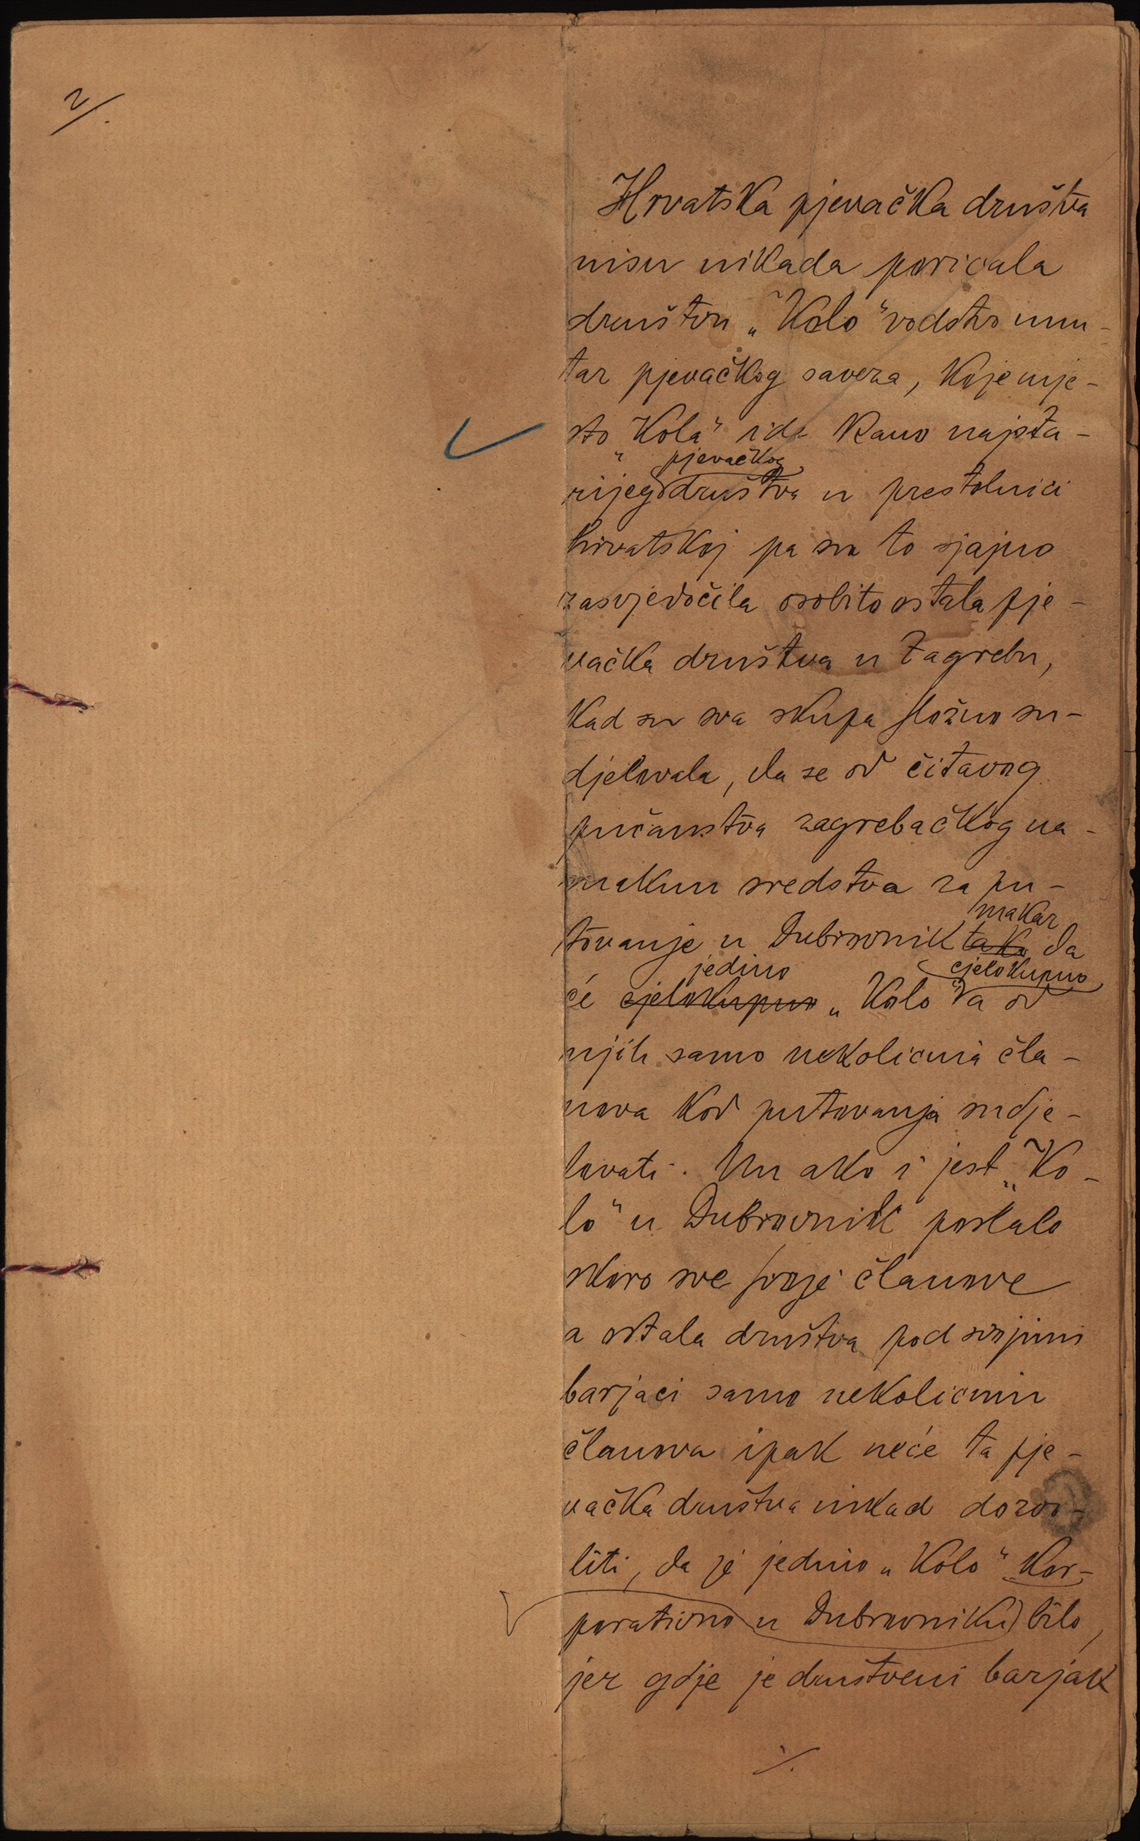 2/.
Hrvatska pjevačka društva
nisu nikada poricala
društvu „Kolo" vodstvo unu-
tar pjevačkog saveza, koje mje-
sto „Kola" ide kano najsta-
pjevačkog
rijeg društva u prestolnici
hrvatskoj pa su to sjajno
zasvjedočila osobito ostala pje-
vačka društva u Zagrebu,
kad su sva skupa složno su-
djelovala, da se od čitavog
pučanstva zagrebačkog na-
maknu sredstva za pu-
makar
tovanje u Dubrovnik tako da
jedino cjelokupno
će cjelokupno „Kolo" a od
njih samo nekolicina čla-
nova kod putovanja sudje-
lovati. Nu ako i jest „Ko-
lo" u Dubrovnik poslalo
skoro sve svoje članove
a ostala društva pod svojimi
barjaci samo nekolicinu
članova ipak neće ta pje-
vačka društva nikad dozvo-
liti, da je jedino „Kolo" kor-
porativno u Dubrovniku bilo,
jer gdje je društveni barjak
./.